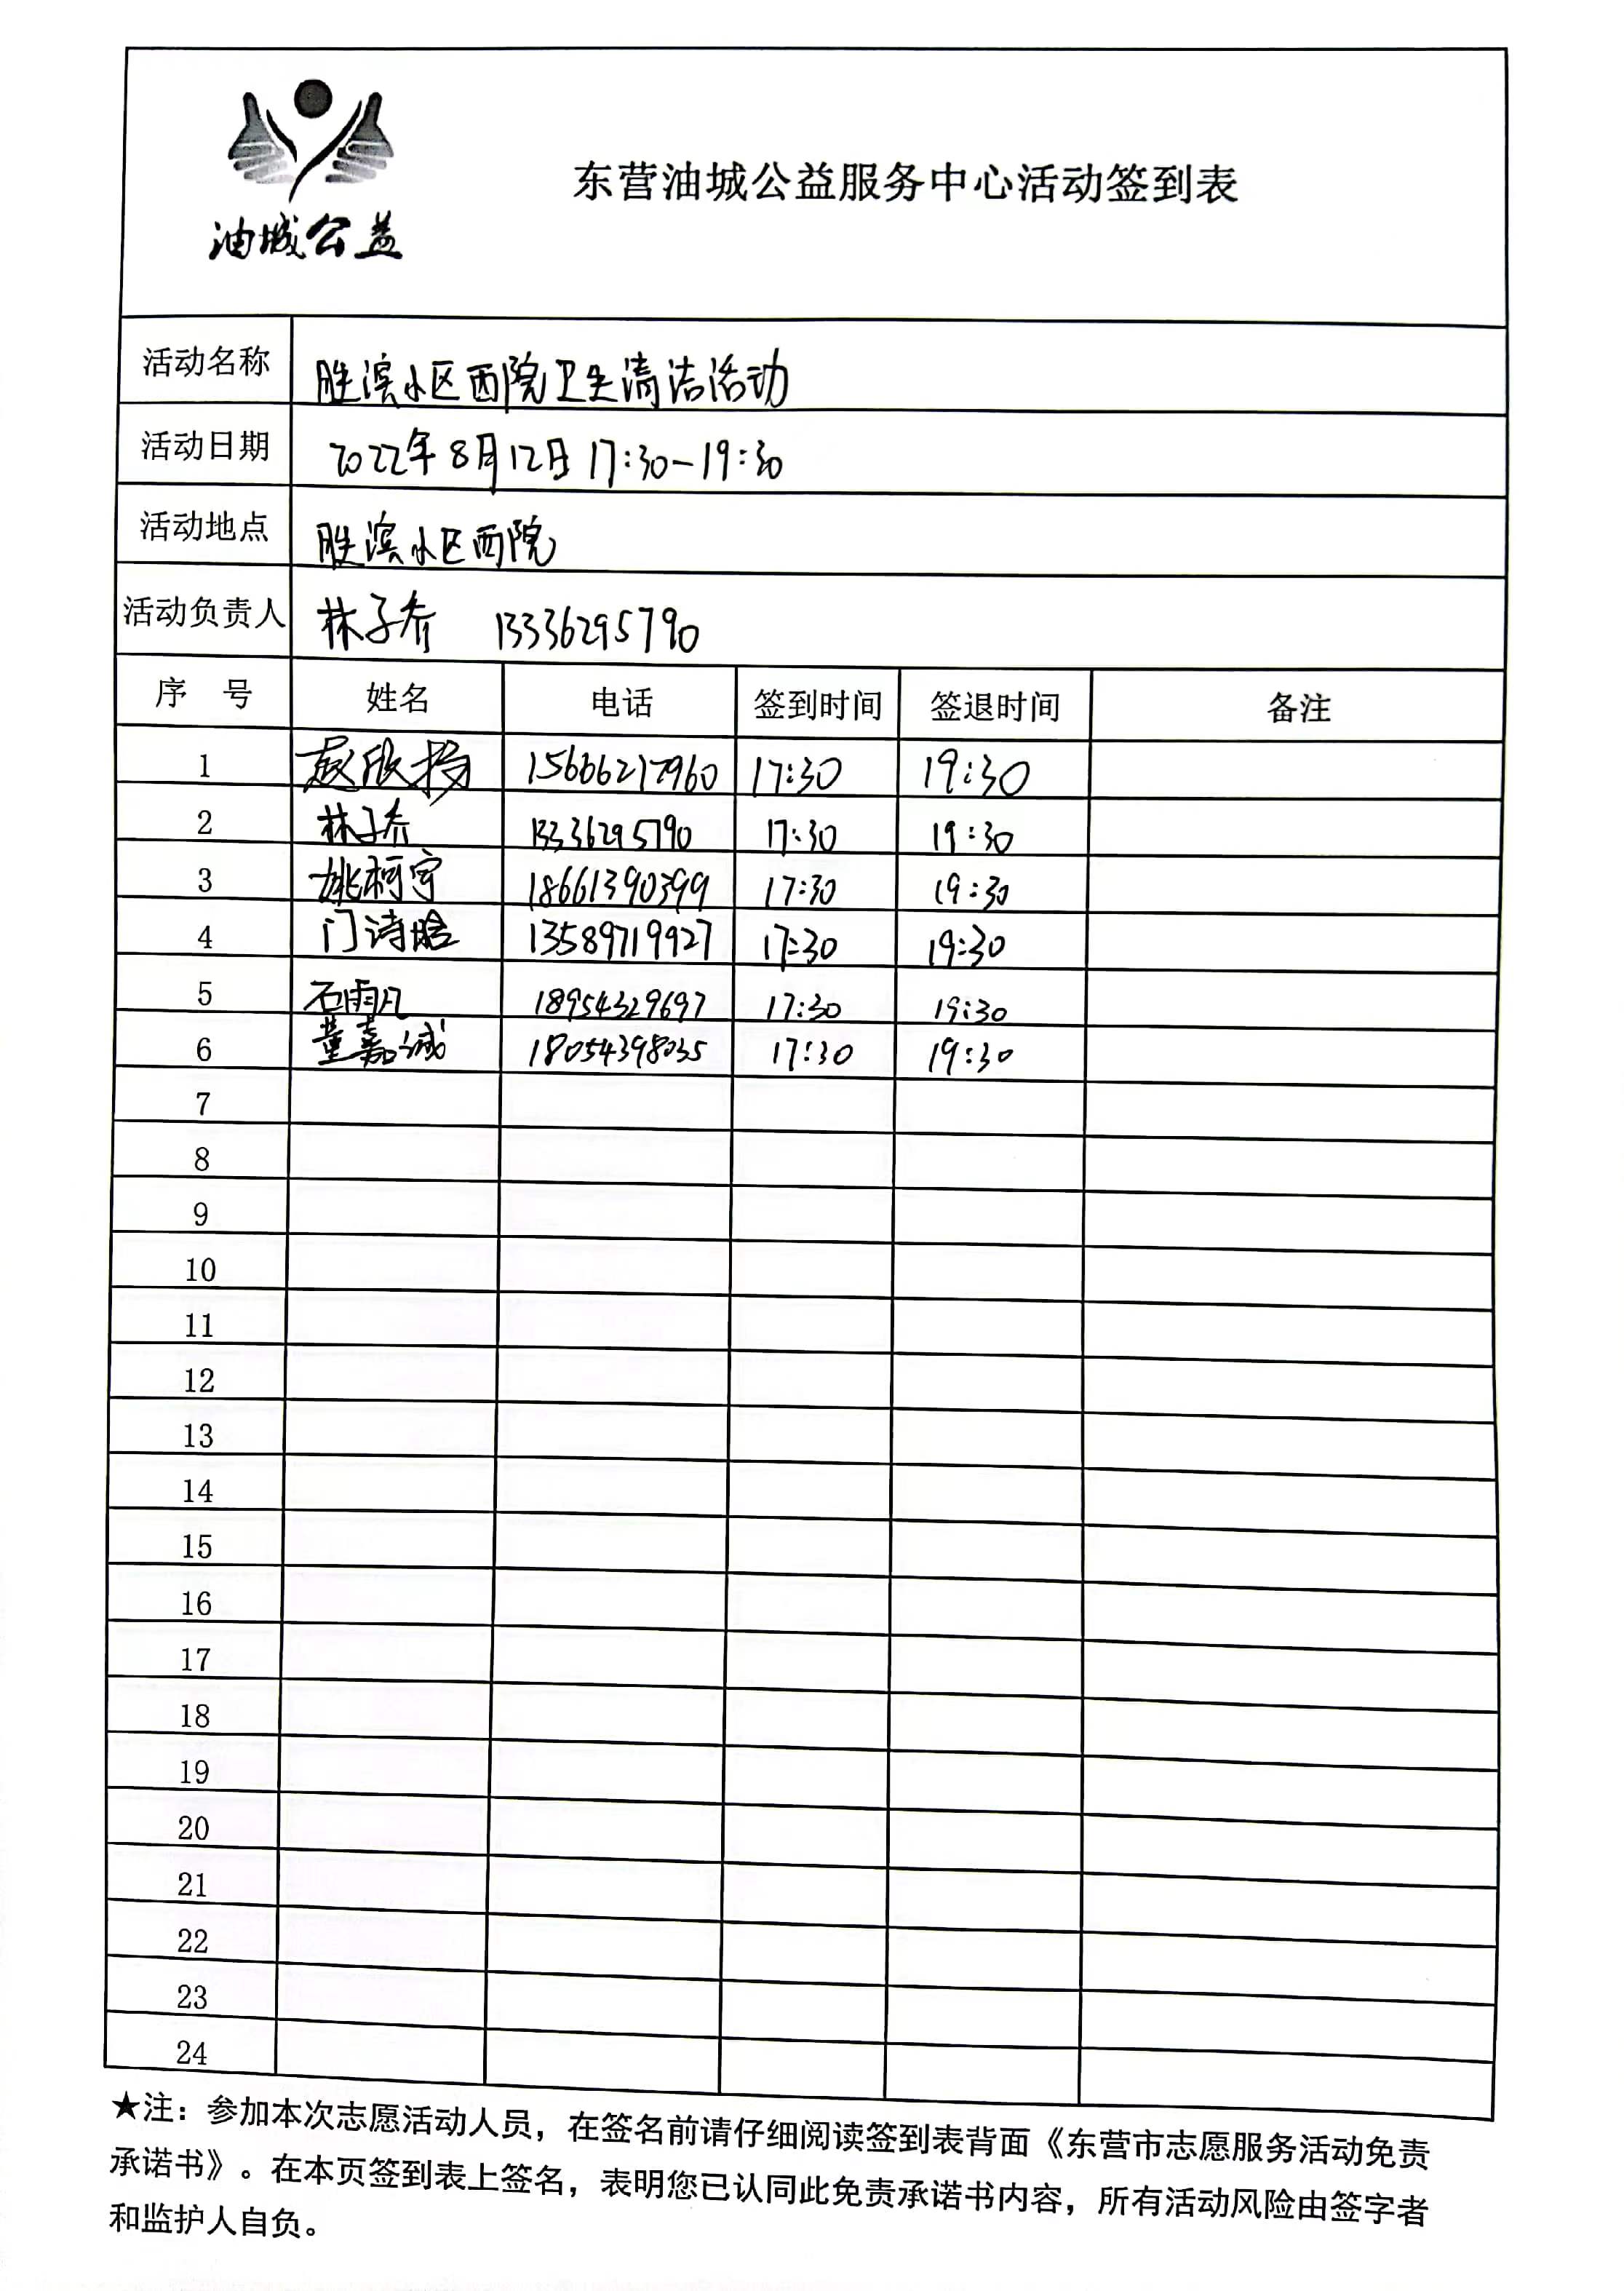 油城公益
东营油城公益服务中心活动签到表
活动名称 胜滨小区西院卫生清洁活动
活动日期 2022年8月12日 17:30-19:30
活动地点 胜滨小区西院
活动负责人 林子乔 13336295790
序 号 姓名 电话 签到时间 签退时间 备注
1 赵欣扬 15666217960 17:30 19:30
2 林子乔 13336295790 17:30 19:30
3 姚柯宇 18661390399 17:30 19:30
4 门诗晗 13589719927 17:30 19:30
5 石雨凡 18954329697 17:30 19:30
6 董嘉诚 18054398035 17:30 19:30
7
8
9
10
11
12
13
14
15
16
17
18
19
20
21
22
23
24
★注：参加本次志愿活动人员，在签名前请仔细阅读签到表背面《东营市志愿服务活动免责
承诺书》。在本页签到表上签名，表明您已认同此免责承诺书内容，所有活动风险由签字者
和监护人自负。